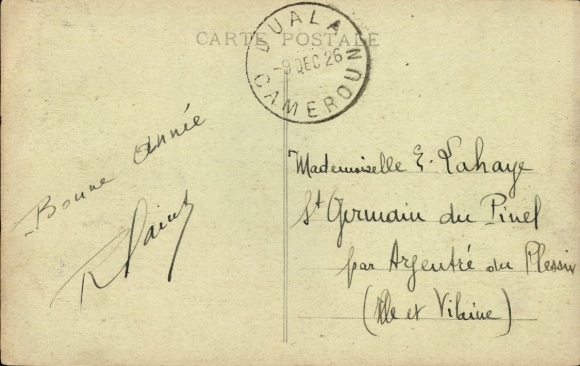 CARTE POSTALE
DUALA
-9 DEC 26
CAMEROUN
Bonne année
Mademoiselle E. Lahaye
St Germain du Pinel
par Argentré du Plessix
(Ille et Vilaine)